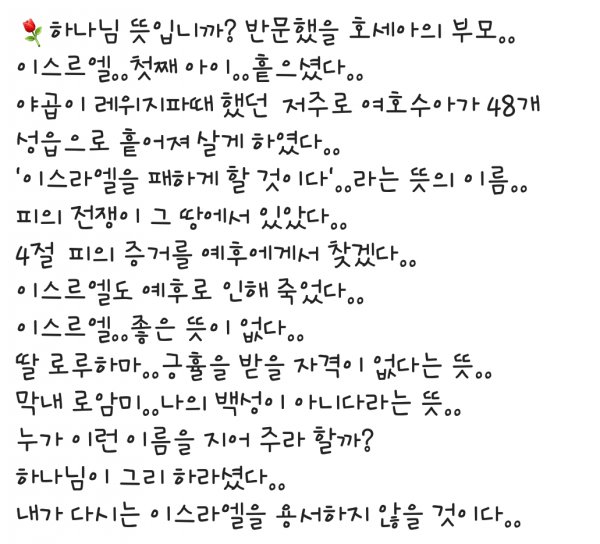 🌹하나님 뜻입니까? 반문했을 호세아의 부모..
이스르엘..첫째 아이..흩으셨다..
야곱이 레위지파때 했던 저주로 여호수아가 48개
성읍으로 흩어져 살게 하였다..
'이스라엘을 패하게 할 것이다'..라는 뜻의 이름..
피의 전쟁이 그 땅에서 있었다..
4절 피의 증거를 예후에게서 찾겠다..
이스르엘도 예후로 인해 죽었다..
이스르엘..좋은 뜻이 없다..
딸 로루하마..긍휼을 받을 자격이 없다는 뜻..
막내 로암미..나의 백성이 아니다라는 뜻..
누가 이런 이름을 지어 주라 할까?
하나님이 그리 하라셨다..
내가 다시는 이스라엘을 용서하지 않을 것이다..